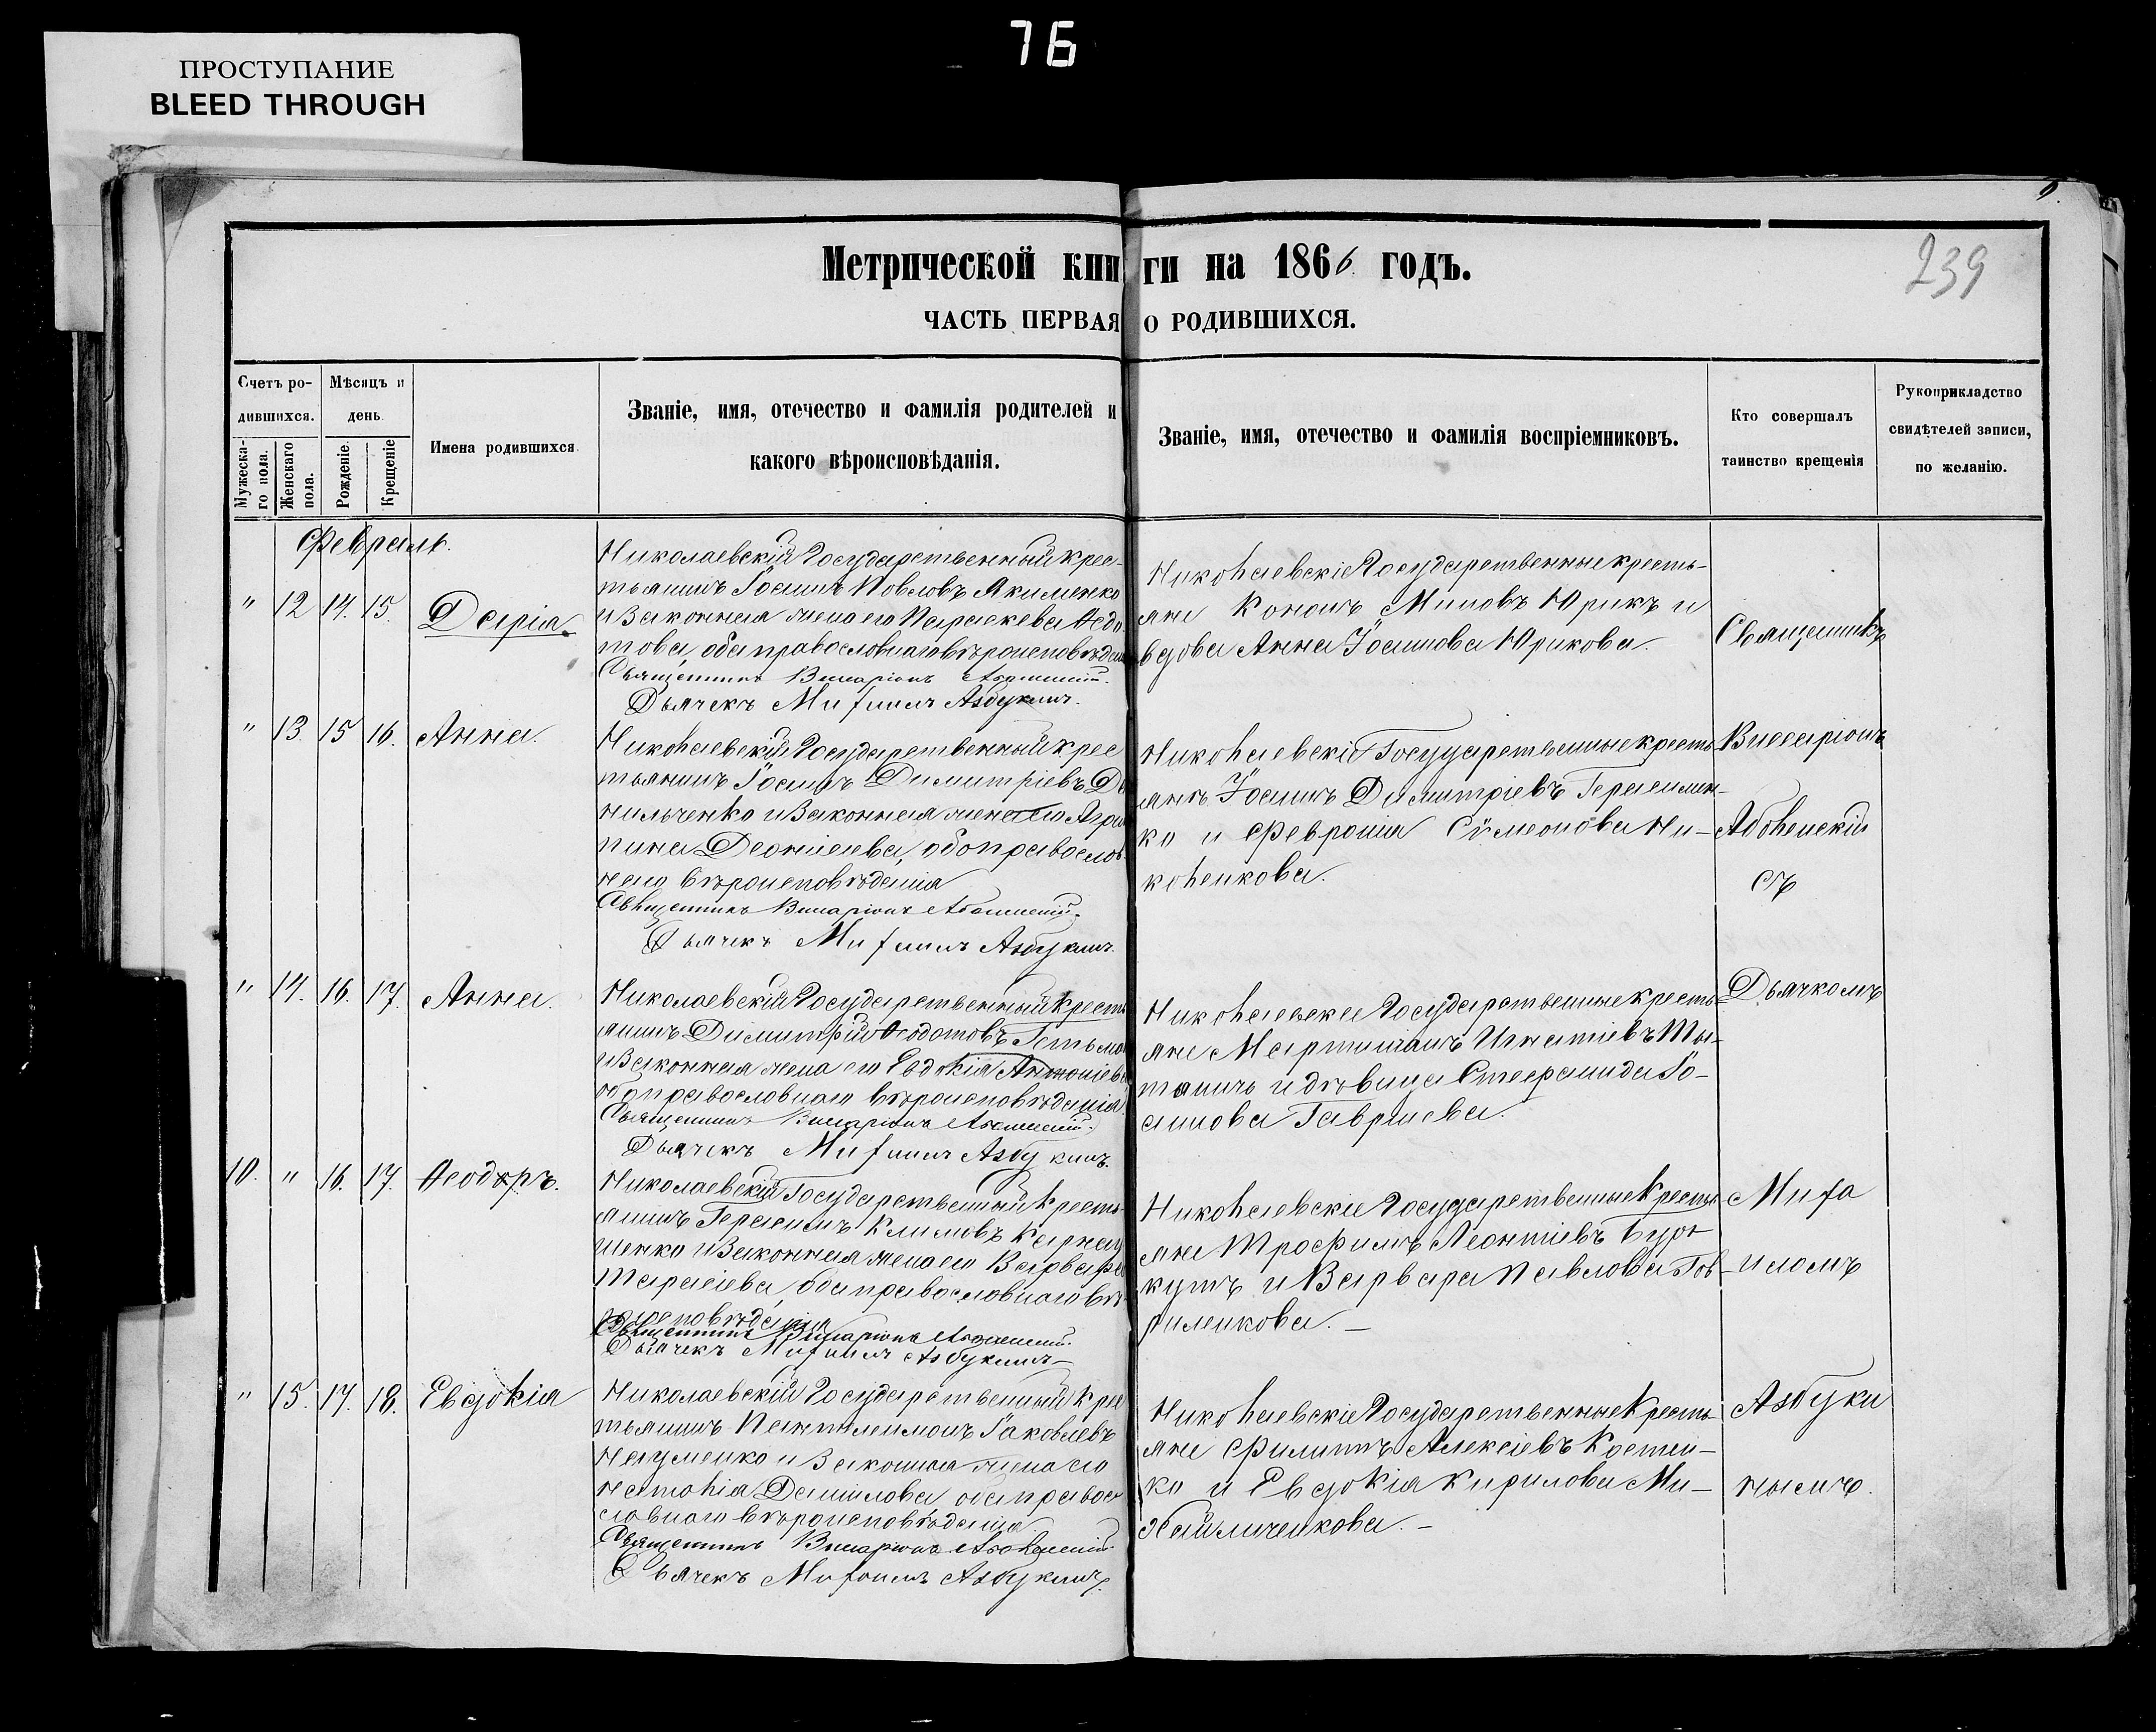 76
ПРОСТУПАНИЕ
BLEED THROUGH
239
Метрической книги на 1866 годъ.
ЧАСТЬ ПЕРВАЯ О РОДИВШИХСЯ.
Счетъ ро-
дившихся.
Мужеска-
го пола.
Женскаго
пола.
Мѣсяцъ и
день.
Рожденіе.
Крещеніе
Имена родившихся.
Званіе, имя, отечество и фамилія родителей и
какого вѣроисповѣданія.
Званіе, имя, отечество и фамилія воспріемниковъ.
Кто совершалъ
таинство крещенія
Рукоприкладство
свидѣтелей записи,
по желанію.
Февраль.
" 12 14. 15. Дарія.
Николаевскій Государственный крес-
тьянинъ Іоаннъ Павловъ Якименко
и Законная жена его Параскева Ѳедо
това, оба православнаго вѣроисповѣданія
Священникъ Виссаріонъ
Дьячекъ Михаилъ Азбукинъ.
Николаевскіе Государственные кресть-
яне Кононъ Миновъ Юрикъ и
вдова Анна Іоаннова Юрикова.
" 13. 15 16. Анна.
Николаевскій Государственный крес
тьянинъ Іоаннъ Димитріевъ Да
нильченко и Законная жена его Агри
пина Діонисіева, оба православ
наго вѣроисповѣданія
Священникъ Виссаріонъ
Дьячекъ Михаилъ Азбукинъ.
Николаевскіе Государственные кресть
яне Іоаннъ Димитріевъ Герасимен-
ко и Февронія Сѵмеонова Ни-
коленкова.
" 14. 16. 17. Анна.
Николаевскій Государственный кресть
янинъ Димитрій Ѳеодотовъ Гетьман
и Законная жена его Евдокія Антоніева
оба православнаго вѣроисповѣданія.
Священникъ Виссаріонъ
Дьячекъ Михаилъ Азбукинъ.
Николаевскіе Государственные кресть
яне Мартиніанъ Игнатіевъ
и дѣвица Стефанида Іо-
аннова
10. " 16. 17. Ѳеодоръ.
Николаевскій Государственный кресть
янинъ Герасимъ Климовъ Карнау
шенко и Законная жена его Варвара
Тарасіева, оба православнаго вѣ
роисповѣданія
Священникъ Виссаріонъ
Дьячекъ Михаилъ Азбукинъ
Николаевскіе Государственные кресть
яне Трофимъ Леонтіевъ Бур-
кутъ и Варвара Павлова Гав-
риленкова.
" 15. 17. 18. Евдокія
Николаевскій Государственный крес
тьянинъ Пантелеимонъ Іаковлевъ
Науменко и Законная жена его
Наталія Даніилова оба правос
лавнаго вѣроисповѣданія.
Священникъ Виссаріонъ
Дьячекъ Михаилъ Азбукинъ.
Николаевскіе Государственные кресть-
яне Филиппъ Алексіевъ Костен-
ко и Евдокія Кирилова Ми-
хайличенкова.
Священникъ
Виссаріонъ
съ
Дьячкомъ
Миха
иломъ
Азбуки
нымъ.